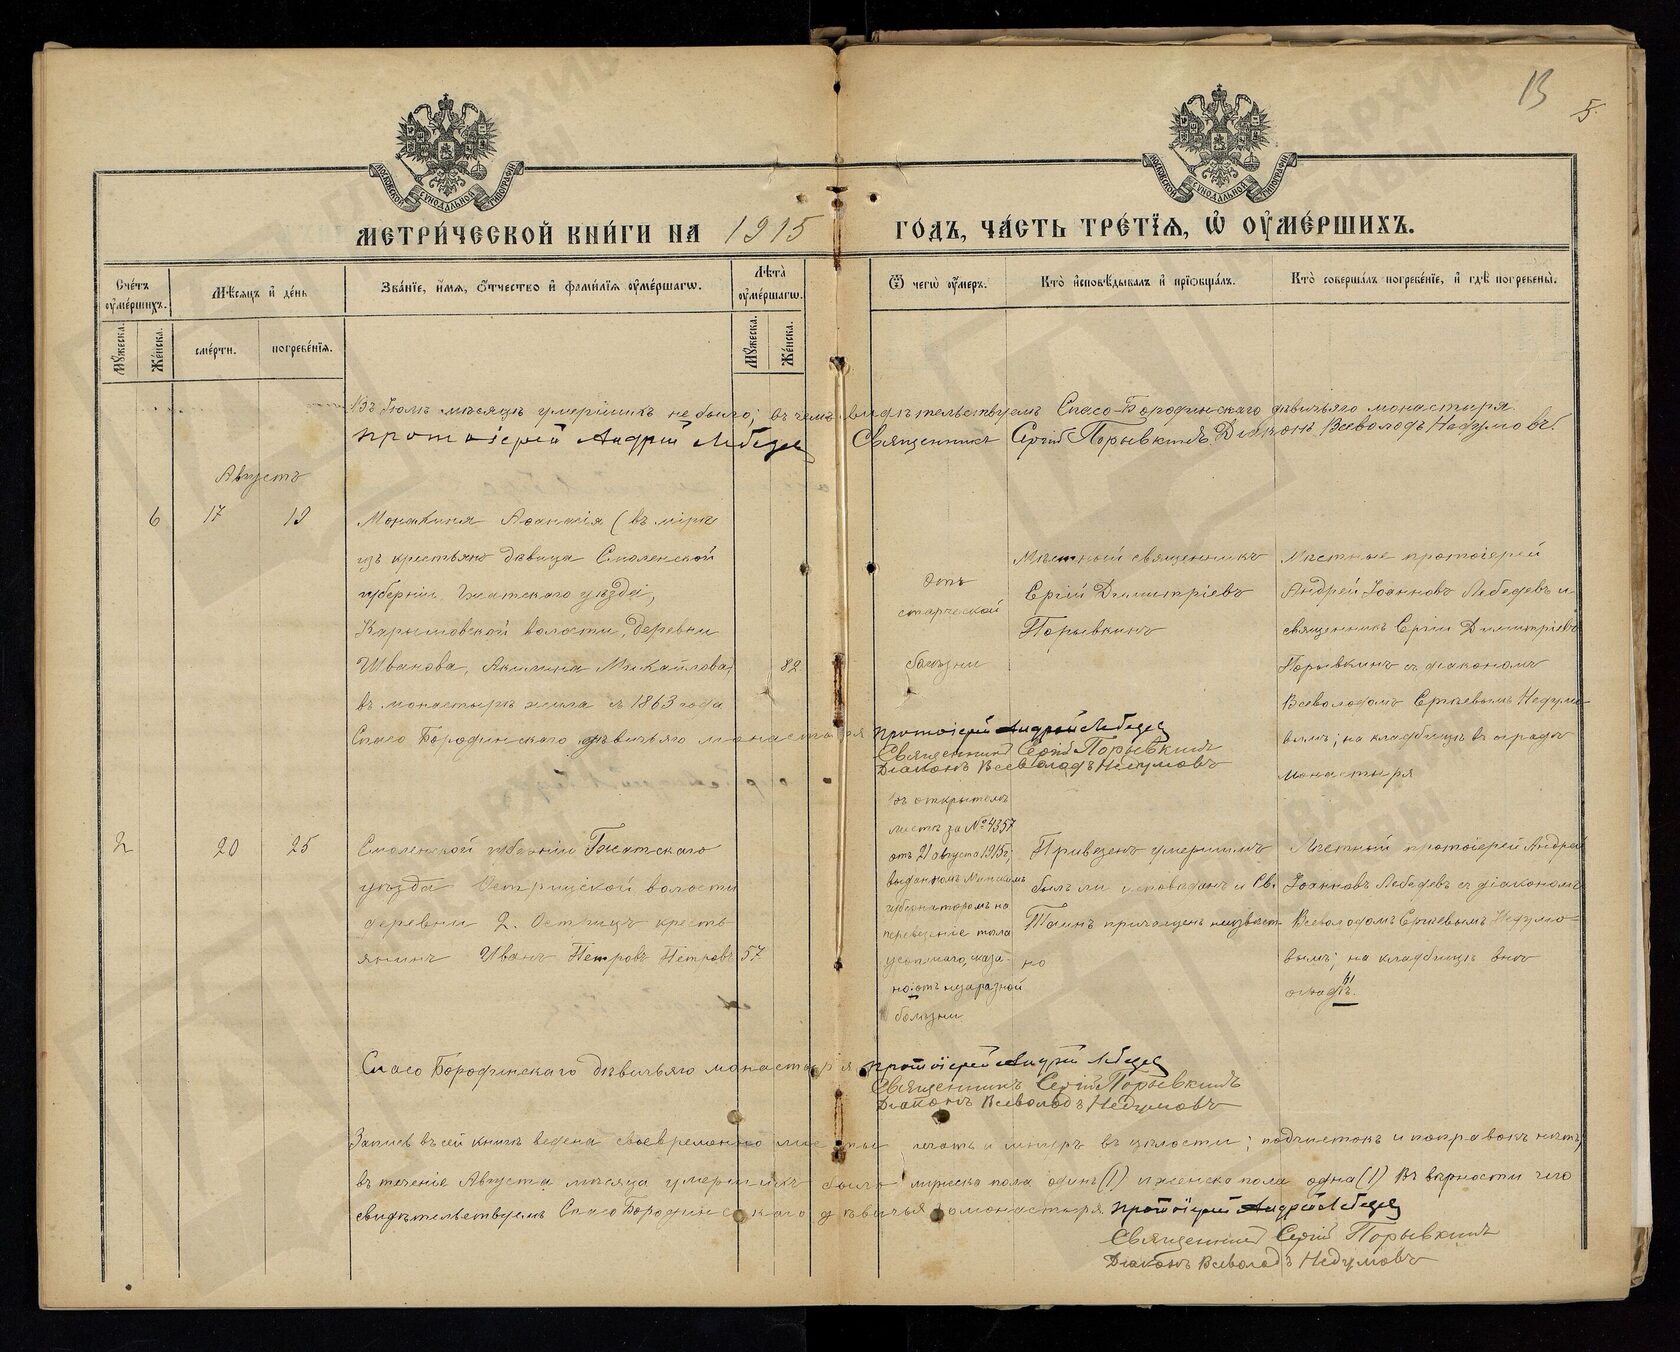 13
5.
МОСКОВСКОЙ СУНОДАЛЬНОЙ ТИПОГРАФІИ
МОСКОВСКОЙ СУНОДАЛЬНОЙ ТИПОГРАФІИ
МЕТРИ́ЧЕСКОЙ КНИ́ГИ НА 1915 ГОДЪ, ЧА́СТЬ ТРЕ́ТІѦ, Ѡ҆ ОУ҆МЕ́РШИХЪ.
Сче́тъ оу҆ме́ршихъ.
Мꙋ́жеска.
Же́нска.
Мѣ́сѧцъ и҆ де́нь
сме́рти.
погребе́нїѧ.
Зва́нїе, и҆́мѧ, ѻ҆́тчество и҆ фами́лїѧ оу҆ме́ршагѡ.
Лѣ́та оу҆ме́ршагѡ.
Мꙋ́жеска.
Же́нска.
Ѿ чегѡ̀ оу҆́меръ.
Кто̀ и҆сповѣ́дывалъ и҆ прїѡбща́лъ.
Кто̀ соверша́лъ погребе́нїе, и҆ гдѣ̀ погребены̀.
Въ Іюлѣ мѣсяцѣ умершихъ не было; въ чемъ свидѣтельствуемъ Спасо-Бородинскаго дѣвичьяго монастыря
протоіерей Андрей Лебедев Священникъ Сергій Порывкинъ. Діаконъ Всеволодъ Недумовъ.
Августъ
6 17 19
Монахиня Аѳанасія (въ мірѣ
изъ крестьянъ дѣвица Смоленской
губерніи Гжатскаго уѣзда,
волости, деревни
Иванова, Акилина Михайлова)
въ монастырѣ жила съ 1863 года
82
Отъ
старческой
болѣзни
Мѣстный священникъ
Сергій Димитріевъ
Порывкинъ
Мѣстные протоіерей
Андрей Іоанновъ Лебедевъ и
священникъ Сергій Димитріевъ
Порывкинъ съ діакономъ
Всеволодомъ Сергѣевымъ Недумо-
вымъ; на кладбищѣ въ оградѣ
монастыря
Спасо Бородинскаго дѣвичьяго монастыря протоіерей Андрей Лебедев
Священникъ Сергій Порывкинъ
Діаконъ Всеволодъ Недумовъ
2 20 25
Смоленской губерніи Гжатскаго
уѣзда Острицкой волости
деревни 2. Острицъ кресть-
янинъ Иванъ Петровъ Петровъ
57
Въ открытомъ
листѣ за № 4357
отъ 21 августа 1915 г;
выданномъ Минскимъ
губернаторомъ на
перевезеніе тѣла
усопшаго, сказа-
но: отъ незаразной
болѣзни.
Привезенъ умершимъ
былъ ли исповѣданъ и Св.
Таинъ причащенъ неизвѣст-
но
Мѣстный протоіерей Андрей
Іоанновъ Лебедевъ съ діакономъ
Всеволодомъ Сергѣевымъ Недумо-
вымъ; на кладбищѣ внѣ
ограды.
Спасо Бородинскаго дѣвичьяго монастыря протоіерей Андрей Лебедев
Священникъ Сергій Порывкинъ
Діаконъ Всеволодъ Недумовъ
Запись въ сей книгѣ ведена своевременно листы печать и шнуръ въ цѣлости; подчистокъ и поправокъ нѣтъ;
въ теченіе Августа мѣсяца умершихъ было мужеска пола одинъ (1) и женска пола одна (1) Въ вѣрности чего
свидѣтельствуемъ Спасо Бородинскаго дѣвичья монастыря протоіерей Андрей Лебедев
Священникъ Сергій Порывкинъ
Діаконъ Всеволодъ Недумовъ